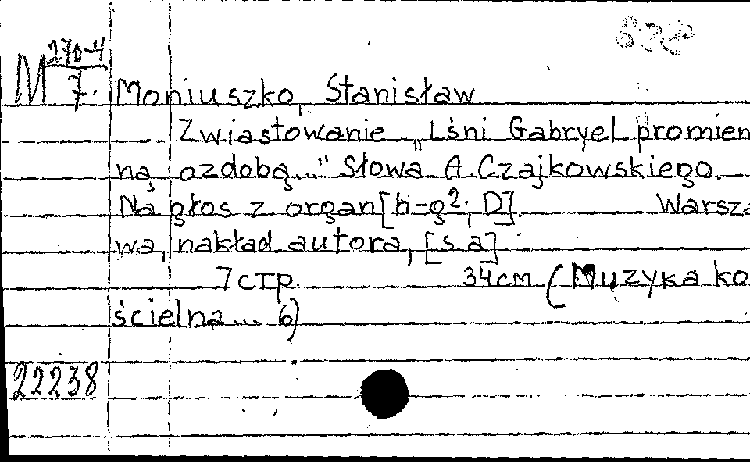 M 270-4
7.
Moniuszko, Stanisław
Zwiastowanie „Lśni Gabryel promien
ną ozdobą..." Słowa A. Czajkowskiego.
Na głos z organ [h-g²; D]. Warsza
wa, nakład autora, [s.a]
7 стр. 34 см (Muzyka ko
ścielna... 6)
22238